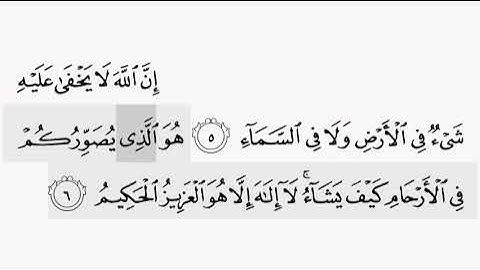 إِنَّ ٱللَّهَ لَا يَخْفَىٰ عَلَيْهِ
شَىْءٌ فِى ٱلْأَرْضِ وَلَا فِى ٱلسَّمَآءِ ٥ هُوَ ٱلَّذِى يُصَوِّرُكُمْ
فِى ٱلْأَرْحَامِ كَيْفَ يَشَآءُ ۚ لَآ إِلَٰهَ إِلَّا هُوَ ٱلْعَزِيزُ ٱلْحَكِيمُ ٦